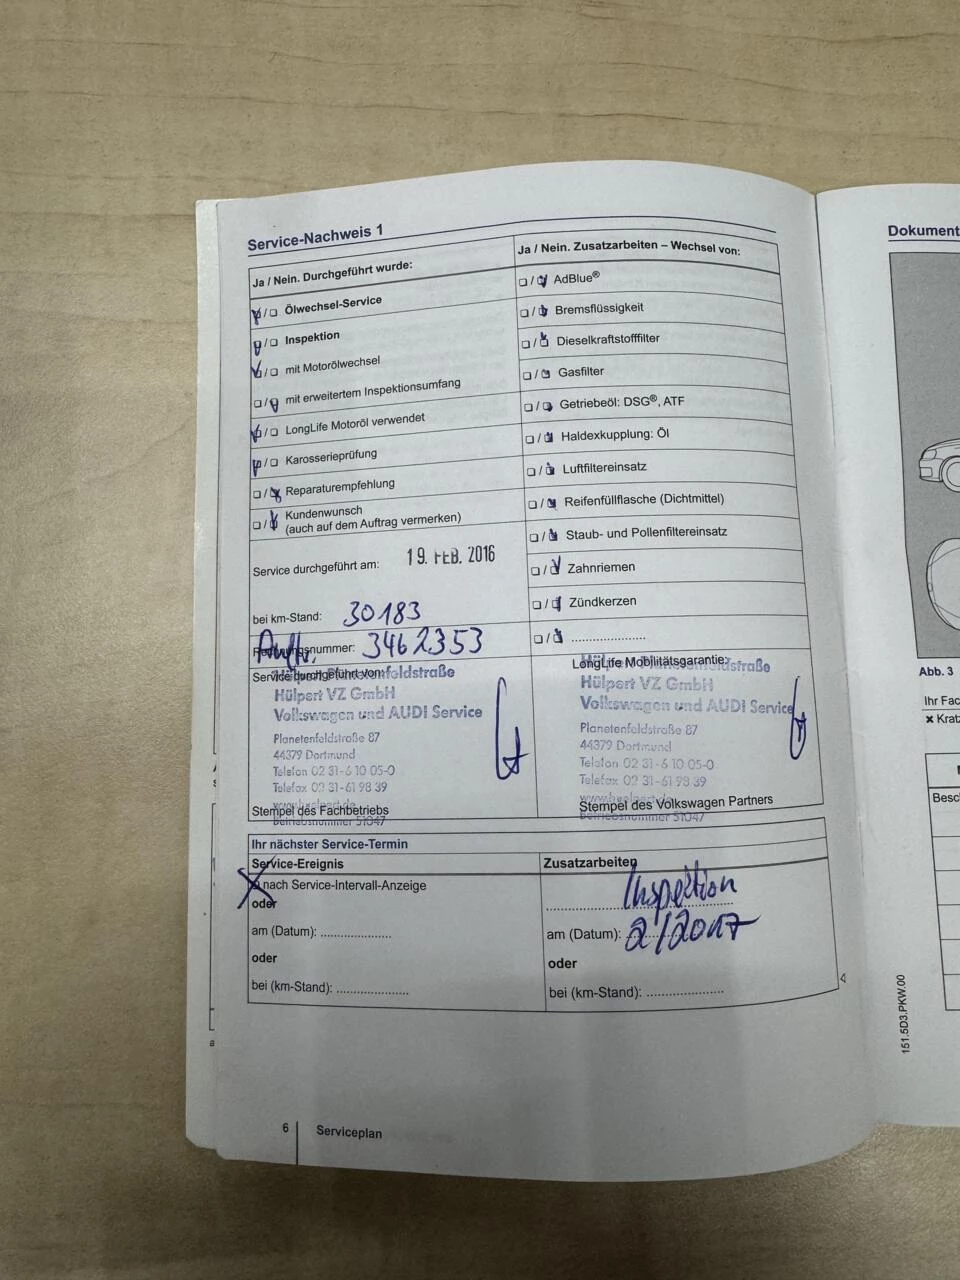 Service-Nachweis 1
Ja / Nein. Durchgeführt wurde:
☑/☐ Ölwechsel-Service
☑/☐ Inspektion
☑/☐ mit Motorölwechsel
☐/☑ mit erweitertem Inspektionsumfang
☑/☐ LongLife Motoröl verwendet
☑/☐ Karosserieprüfung
☐/☑ Reparaturempfehlung
☐/☑ Kundenwunsch
(auch auf dem Auftrag vermerken)
Service durchgeführt am: 19. FEB. 2016
bei km-Stand: 30183
Auftr. Rechnungsnummer: 3462353
Service durchgeführt von:
Hülpert VZ GmbH
Volkswagen und AUDI Service
Planetenfeldstraße 87
44379 Dortmund
Telefon 02 31-6 10 05-0
Telefax 02 31-61 98 39
www.huelpert.de
Stempel des Fachbetriebs
Betriebsnummer 51047
Ja / Nein. Zusatzarbeiten – Wechsel von:
☐/☑ AdBlue®
☐/☑ Bremsflüssigkeit
☐/☑ Dieselkraftstofffilter
☐/☑ Gasfilter
☐/☑ Getriebeöl: DSG®, ATF
☐/☑ Haldexkupplung: Öl
☐/☑ Luftfiltereinsatz
☐/☑ Reifenfüllflasche (Dichtmittel)
☐/☑ Staub- und Pollenfiltereinsatz
☐/☑ Zahnriemen
☐/☑ Zündkerzen
☐/☑ .....................
LongLife Mobilitätsgarantie:
Hülpert VZ GmbH
Volkswagen und AUDI Service
Planetenfeldstraße 87
44379 Dortmund
Telefon 02 31-6 10 05-0
Telefax 02 31-61 98 39
www.huelpert.de
Stempel des Volkswagen Partners
Betriebsnummer 51047
Ihr nächster Service-Termin
Service-Ereignis
☒ nach Service-Intervall-Anzeige
oder
am (Datum): ....................
oder
bei (km-Stand): ....................
Zusatzarbeiten
Inspektion
am (Datum): 2/2017
oder
bei (km-Stand): ....................
6 Serviceplan
Dokument
Abb. 3
Ihr Fac
× Kratz
Besc
151.5D3.PKW.00